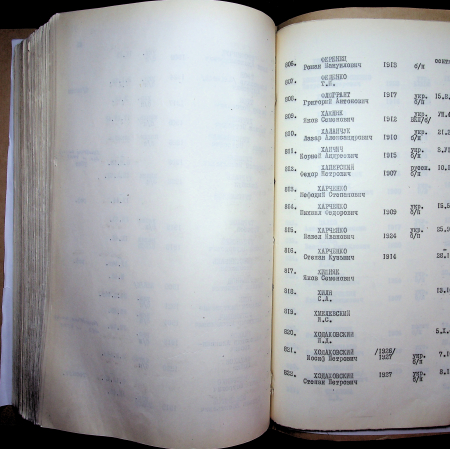 806. ФЕРЕНЕЦ
Роман Мануилович 1913 б/п
807. ФИЛЕНКО
Т.Н.
808.
Григорий Антонович 1917 укр. б/п 15.
809.
Яков Семенович 1912 укр.
810. ХАЛАПЧУК
Лазар Александрович 1910 укр. б/п
811. ХАПЧИЧ
Корней Андреевич 1915 укр. б/п
812. ХАПЕРСКИЙ
Федор Петрович 1907 русск. б/п 10.
813. ХАРЧЕНКО
Мефодий Степанович
814. ХАРЧЕНКО
Михаил Федорович 1909 укр. б/п 15.
815. ХАРЧЕНКО
Павел Иванович 1924 укр. б/п
816. ХАРЧЕНКО
Степан Кузьмич 1914
817.
Яков Семенович
818. ХИЛЯ
С.А.
819. ХМЕЛЕВСКИЙ
И.С.
820. ХОДАКОВСКИЙ
В.Д. 5.
821. ХОДАКОВСКИЙ /1926/
Иосиф Петрович 1927 укр. б/п 7.1
822. ХОДАКОВСКИЙ
Степан Петрович 1927 укр. б/п 8.